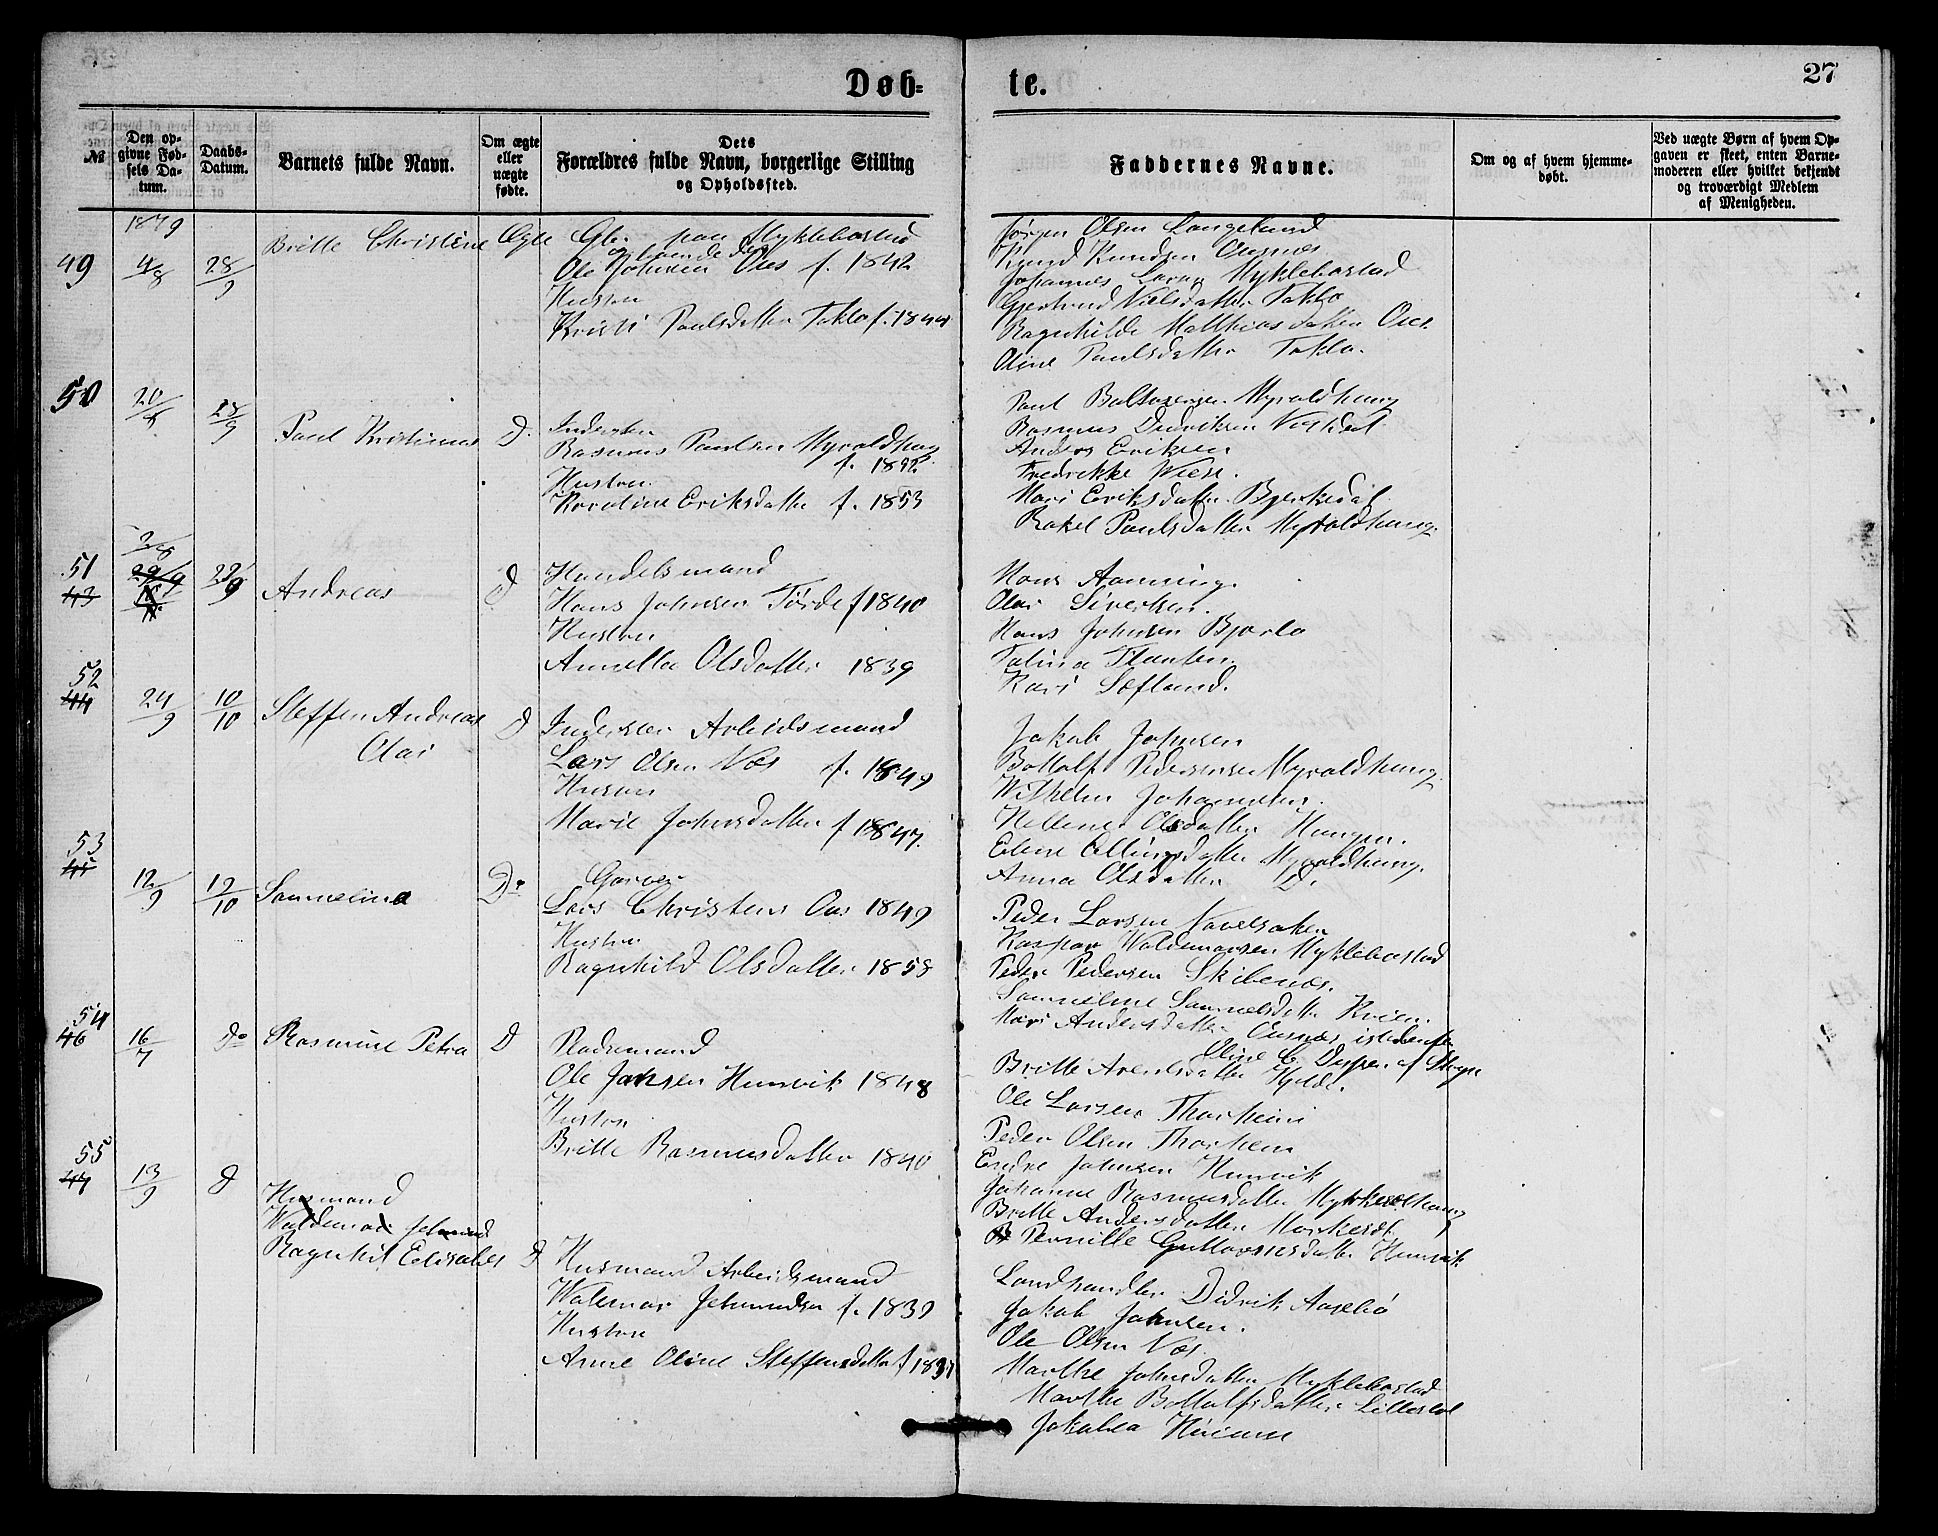 Døb=
te.
27
№
Den op-
givne Fød-
sels Da-
tum.
Daabs-
Datum.
Barnets fulde Navn.
Om ægte
eller
uægte
fødte.
Dets
Forældres fulde Navn, borgerlige Stilling
og Opholdssted.
Faddernes Navne.
Om og af hvem hjemme-
døbt.
Ved uægte Børn af hvem Op-
gaven er skeet, enten Barne-
moderen eller hvilket bekjendt
og troværdigt Medlem
af Menigheden.
1879
49
4/8
28/9
Britte Christine
Ægte
Gbr. paa Myklebostad
Ole Johnsen Oies f. 1842
Hustru
Kristi Paulsdatter Taklo f. 1844
Jørgen Olsen Langelund
Knud Knudsen
Johannes Larsen Myklebostad
Gjertrud Nielsdatter Taklo
Ragnhilde Matthiasdatter Oies
Oline Paulsdatter Taklo.
50
20/8
28/9
Paul Kristinus
D.
Inderster
Rasmus Paulsen Myroldhaug
Hustru
Karoline Eriksdatter f. 1853
Paul Baltazersen Myroldhaug
Rasmus Didriksen
Anders Eriksen
Fredrikke Wiese.
Mari Eriksdatter Bjerkedal
Rakel Paulsdatter Myroldhaug.
51
43
29/9
Andreas
D
Handelsmand
Hans Johnsen Förde f 1840
Hustru
Annetta Olsdatter 1839
Hans Aamning.
Olai Sivertsen.
Hans Johnsen Bjorlo
Talina
Kari Sæfland.
52
44
24/9
10/10
Steffen Andreas
Olai
D
Inderster Arbeidsmand
Lars Olsen Nos f. 1849
Hustru
Marie Johnsdatter f 1847.
Jakob Johnsen
Bottolf Pedersen Myroldhaug.
Wilhelm Johannesen.
Hellene Olsdatter Haugen.
Eline Ellingsdatter Myroldhaug.
Anna Olsdatter D.
53
45
12/9
12/10
Sammeline
Do
Garver
Lars Christens Oies 1849
Hustru
Ragnhild Olsdatter 1858
Peder Larsen Navelsaker
Kaspar Waldemarsen Myklebostad
Peder Pedersen Skibenes.
Sammeline Sammelsdatter Kvien.
Mari Andersdatter
Britte Arentsdatter Hjelde.
54
46
16/7
do
Rasmine Petra
D
Pladsmand
Ole Jansen Hunvik 1848
Hustru
Britte Rasmusdatter 1840
Ole Larsen Thorheim
Peder Olsen Thorheim
Endre Johnsen Hunvik
Johanne Rasmusdatter
Britte Andersdatter
Pernille Guttormsdatter Hunvik
55
47
13/9
D
Husmand
Waldemar
Ragnhil Elisabet
D
Husmand Arbeidsmand
Walemar Jetmundsen f. 1839
Hustru
Anne Oline Steffensdatter f 1837
Landhandler Didrik Aasebø
Jakob Johnsen.
Ole Olsen Nos
Marthe Johnsdatter Myklebostad
Marthe Bottolfsdatter Lillestøl
Jakobea